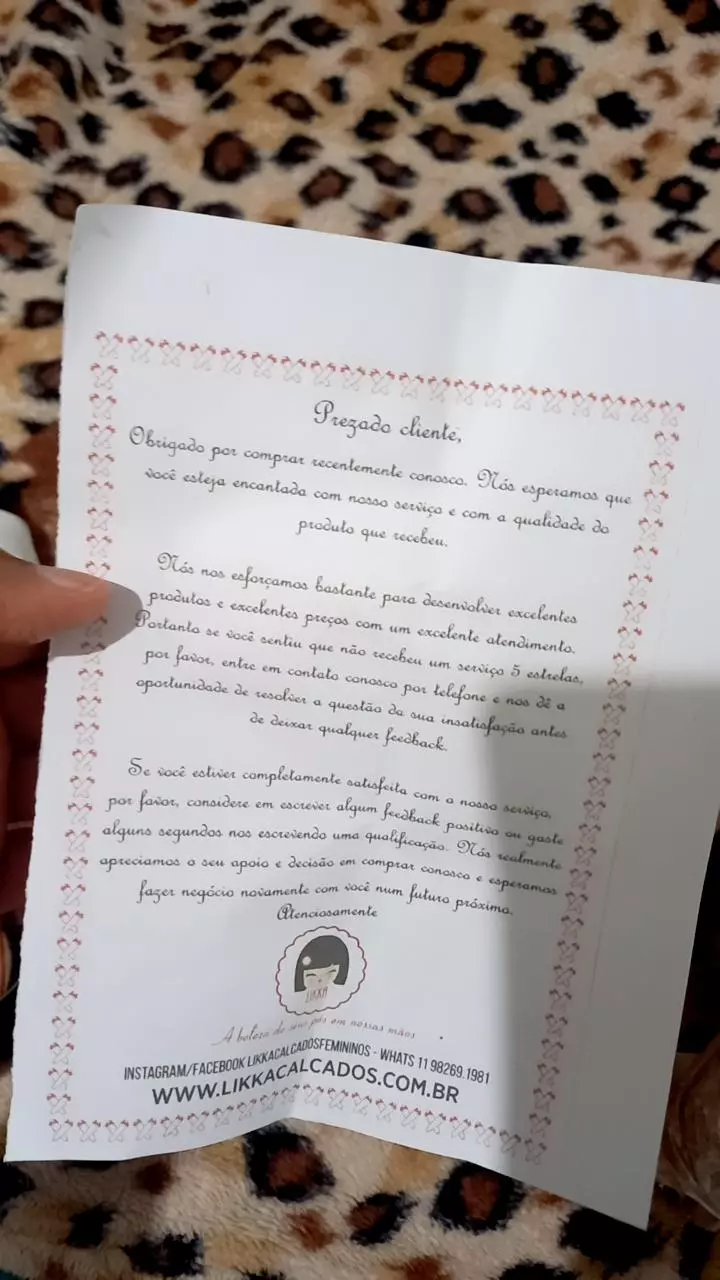 Prezado cliente,
Obrigado por comprar recentemente conosco. Nós esperamos que
você esteja encantada com nosso serviço e com a qualidade do
produto que recebeu.
Nós nos esforçamos bastante para desenvolver excelentes
produtos e excelentes preços com um excelente atendimento.
Portanto se você sentiu que não recebeu um serviço 5 estrelas,
por favor, entre em contato conosco por telefone e nos dê a
oportunidade de resolver a questão da sua insatisfação antes
de deixar qualquer feedback.
Se você estiver completamente satisfeita com o nosso serviço,
por favor, considere em escrever algum feedback positivo ou gaste
alguns segundos nos escrevendo uma qualificação. Nós realmente
apreciamos o seu apoio e decisão em comprar conosco e esperamos
fazer negócio novamente com você num futuro próximo.
Atenciosamente
LIKKA
A beleza de seus pés em nossas mãos
INSTAGRAM/FACEBOOK LIKKACALCADOSFEMININOS - WHATS 11 98269.1981
WWW.LIKKACALCADOS.COM.BR